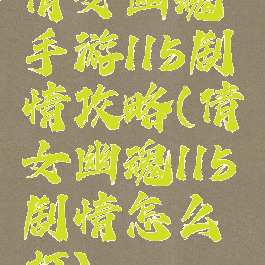 倩女幽魂
手游115剧
情攻略(倩
女幽魂115
剧情怎么